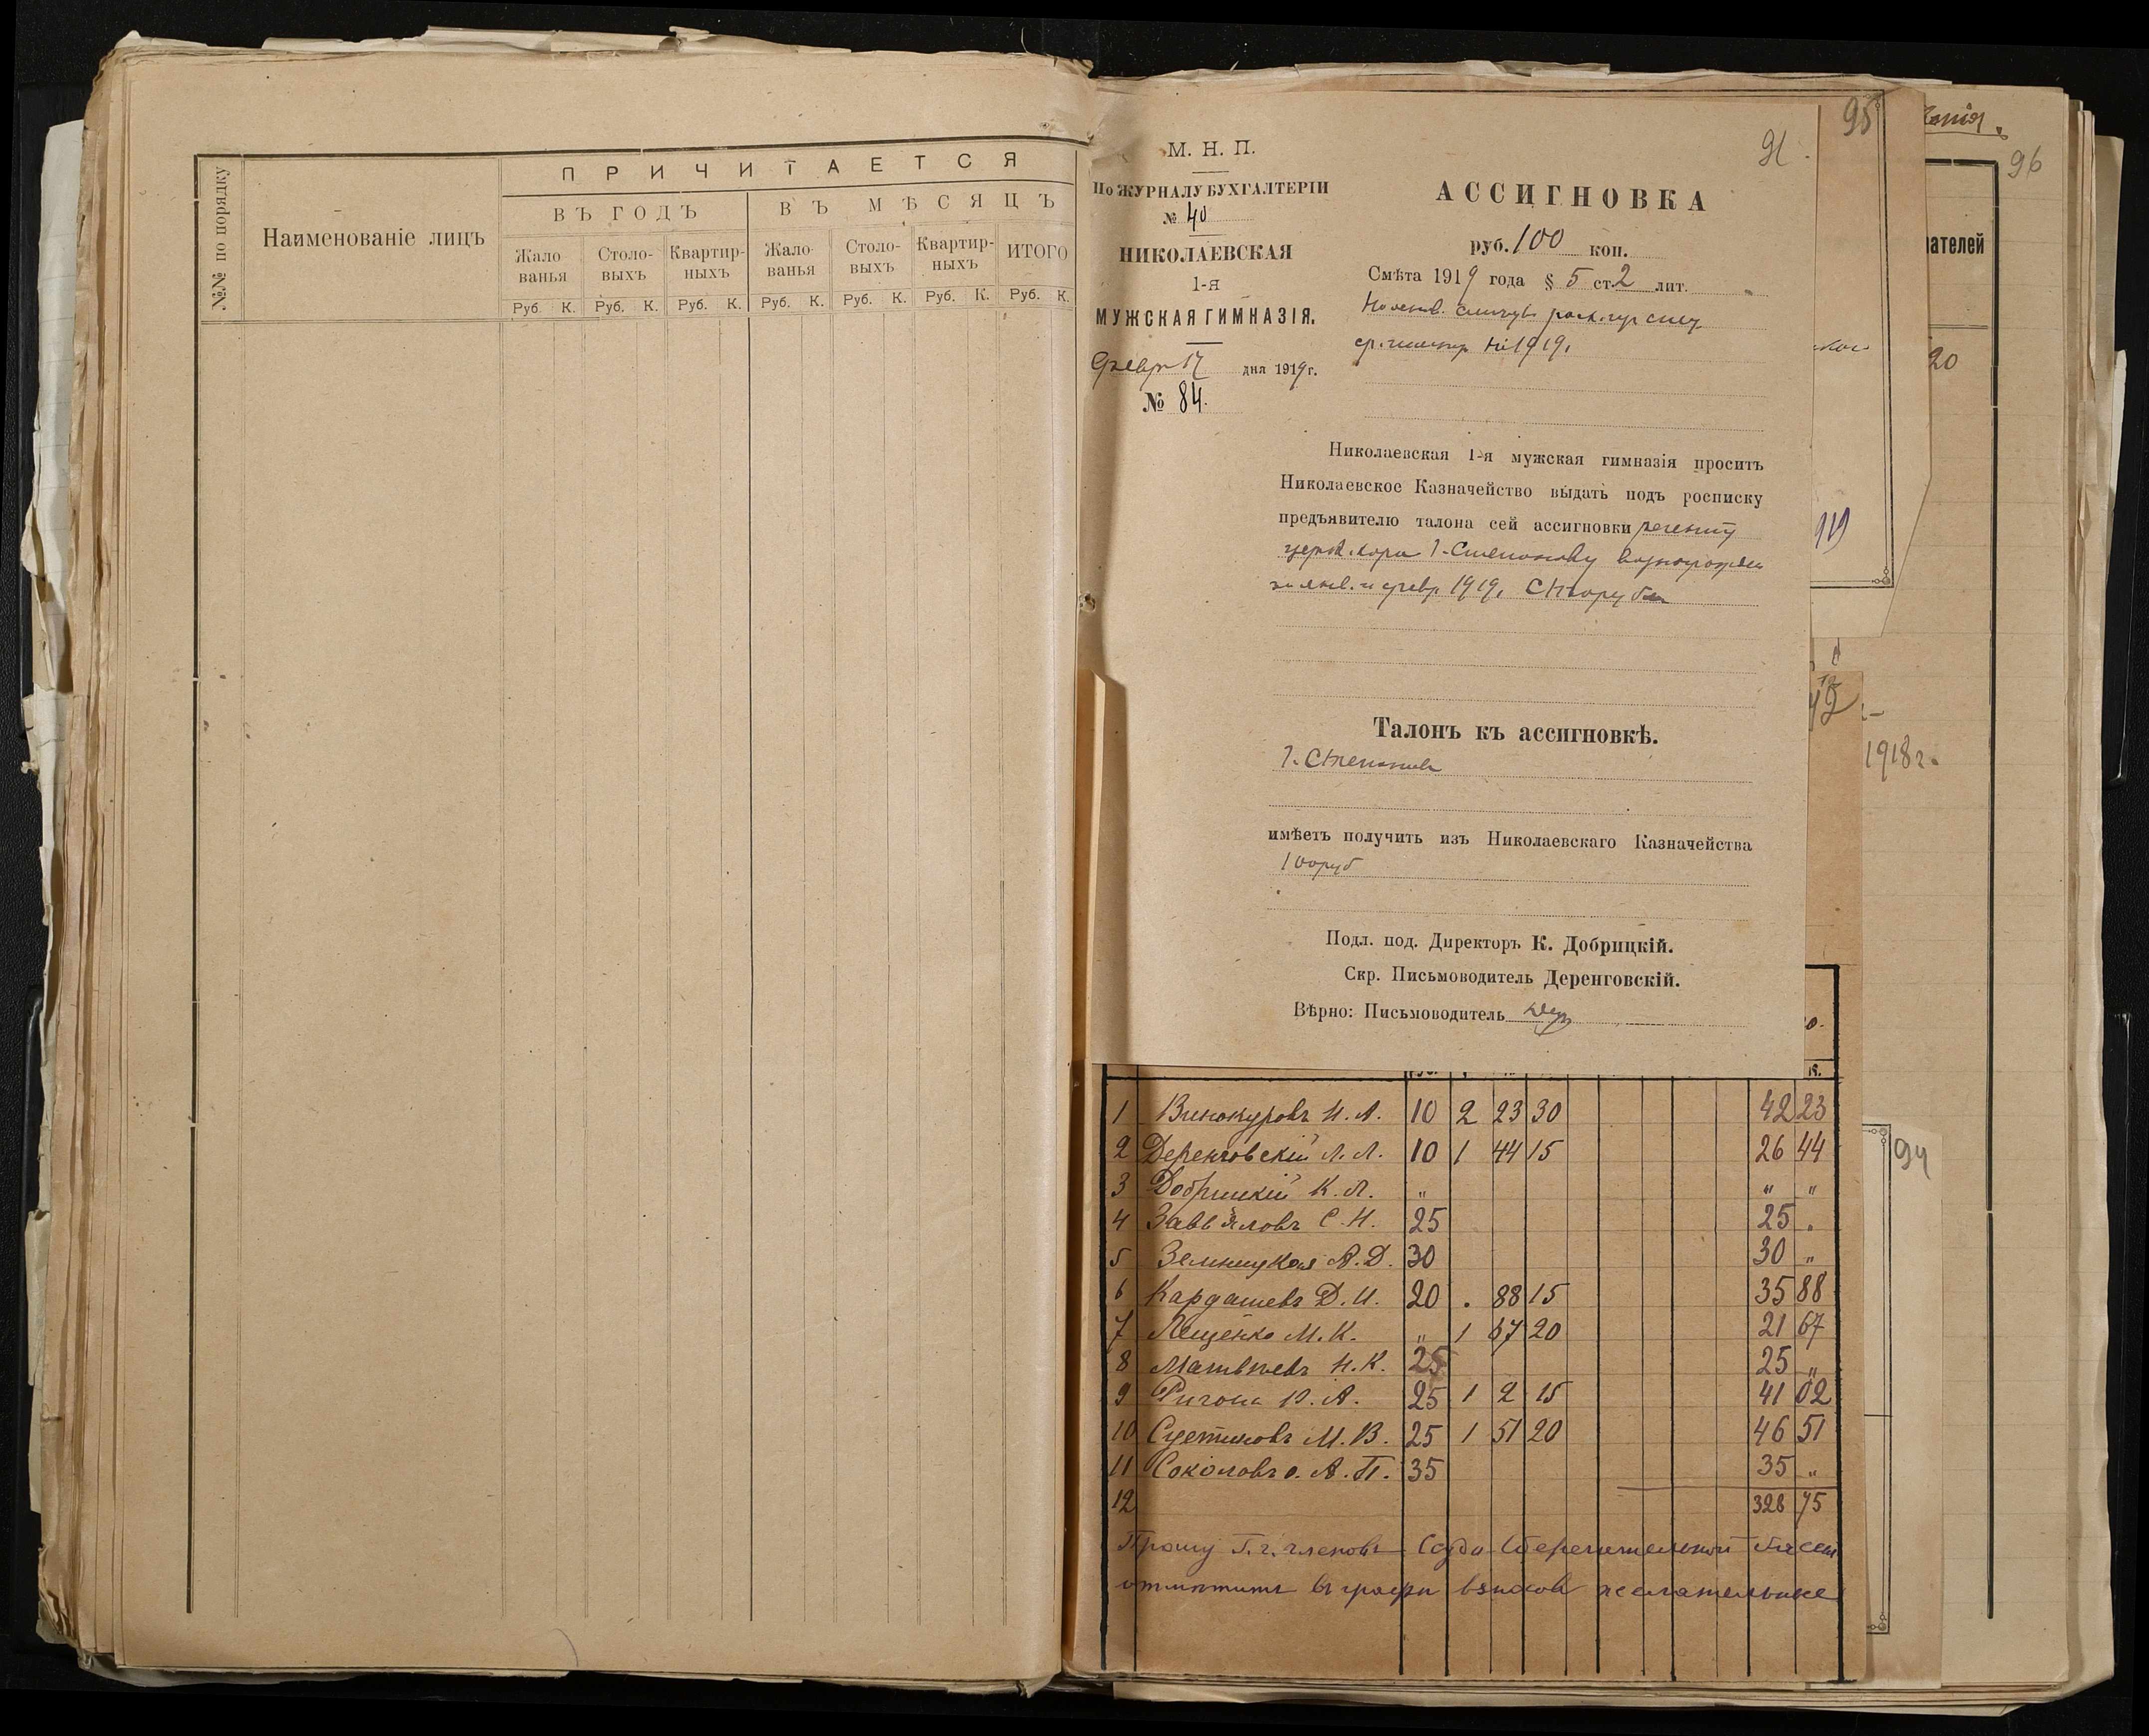 №№ по порядку
Наименованіе лицъ
ПРИЧИТАЕТСЯ
ВЪ ГОДЪ
ВЪ МѢСЯЦЪ
Жало
ванья
Столо-
выхъ
Квартир-
ныхъ
Жало-
ванья
Столо-
выхъ
Квартир-
ныхъ
ИТОГО
Руб. К. Руб. К. Руб. К. Руб. К. Руб. К. Руб. К. Руб. К.
М. Н. П.
По ЖУРНАЛУ БУХГАЛТЕРІИ
№ 40
НИКОЛАЕВСКАЯ
1-я
МУЖСКАЯ ГИМНАЗІЯ.
Февр 17 дня 1919 г.
№ 84.
91.
АССИГНОВКА
руб. 100 коп.
Смѣта 1919 года § 5 ст. 2 лит.
1919.
Николаевская 1-я мужская гимназія проситъ
Николаевское Казначейство выдать подъ росписку
предъявителю талона сей ассигновки регенту
церков. хора І. Степанову вознагражден
за янв. и февр. 1919. Сто руб
Талонъ къ ассигновкѣ.
І. Степановъ
имѣетъ получить изъ Николаевскаго Казначейства
100 руб
Подл. под. Директоръ К. Добрицкій.
Скр. Письмоводитель Деренговскій.
Вѣрно: Письмоводитель
95
96
ателей
20
919
42
1918 г.
94
К.
1 Винокуровъ Н. А. 10 2 23 30 42 23
2 Деренговскій Л. Л. 10 1 44 15 26 44
3 Добрицкій К. Л. „ „ „
4 Заввяловъ С. Н. 25 25 „
5 А. Д. 30 30 „
6 Кардашевъ Д. И. 20 . 88 15 35 88
7 Лещенко М. К. „ 1 67 20 21 67
8 Матвѣевъ Н. К. 25 25 „
9 А. 25 1 2 15 41 02
10 Суетиновъ М. В. 25 1 51 20 46 51
11 Соколовъ о. А. П. 35 35 „
12 328 75
Прошу Г.г. членовъ Ссудо Сберегательной Кассы
отмѣтить въ графѣ взносов желательные